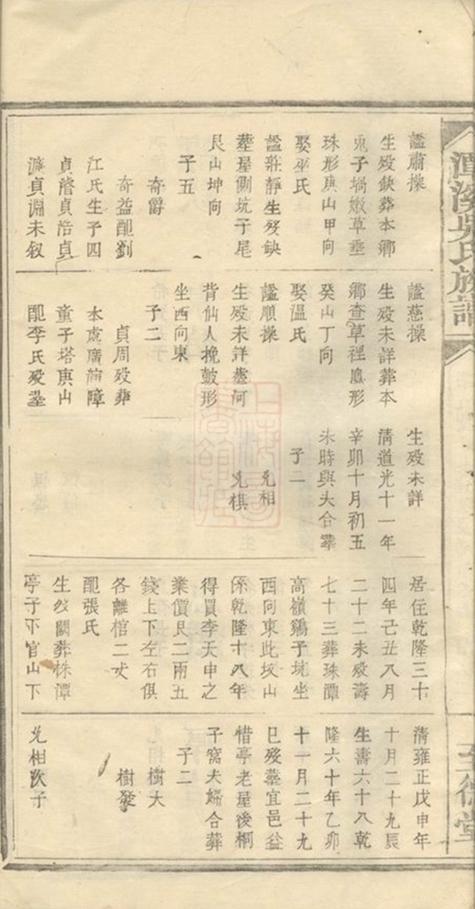 謚肅操
生殁缺葬本鄉
鬼子塥嫩草垂
珠形庚山甲向
娶巫氏
謚莊靜生殁缺
塟屋側坑子尾
艮山坤向
子五
奇爵
奇益配劉
江氏生子四
貞濬貞浩貞
貞淵未叙
謚慈操
生殁未詳葬本
鄉查草裡鳳形
癸山丁向
娶温氏
謚順操
生殁未詳塟河
背仙人挽鼓形
坐西向東
子二
貞周殁葬
水處廣
童子塔庚山
配李氏殁塟
生殁未詳
清道光十一年
辛卯十月初五
未時與夫合塟
子二
兑相
兑棋
居住乾隆三十
四年己丑八月
二十二未殁壽
七十三葬珠潭
高嶺鷄子坑坐
西向東此坟山
係乾隆十八年
得買李天申之
業價艮二兩五
錢上下左右俱
各離棺二丈
配張氏
生殁闕葬株潭
亭子下官山下
清雍正戊申年
十月二十九辰
生壽六十八乾
隆六十年乙卯
十一月二十九
巳殁塟宜邑益
惜亭老屋後桐
子窩夫婦合葬
子二
樹大
樹發
兑相次子
潭溪吳氏族譜